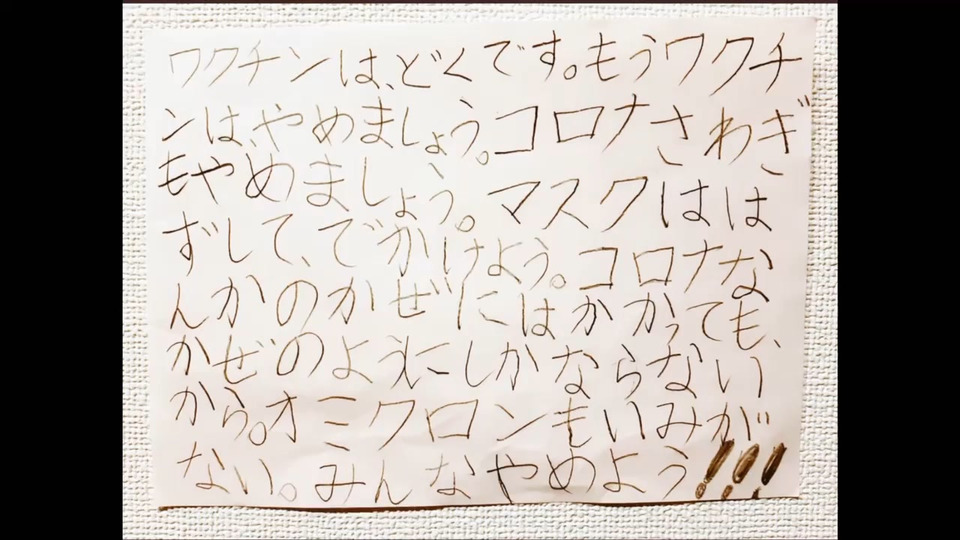 ワクチンは、どくです。もうワクチ
ンは、やめましょう。コロナさわぎ
もやめましょう。マスクはは
ずして、でかけよう。コロナな
んかのかぜにはかかっても、
かぜのよえにしかならない
から。オミクロンもいみが
ない。みんなやめよう!!!